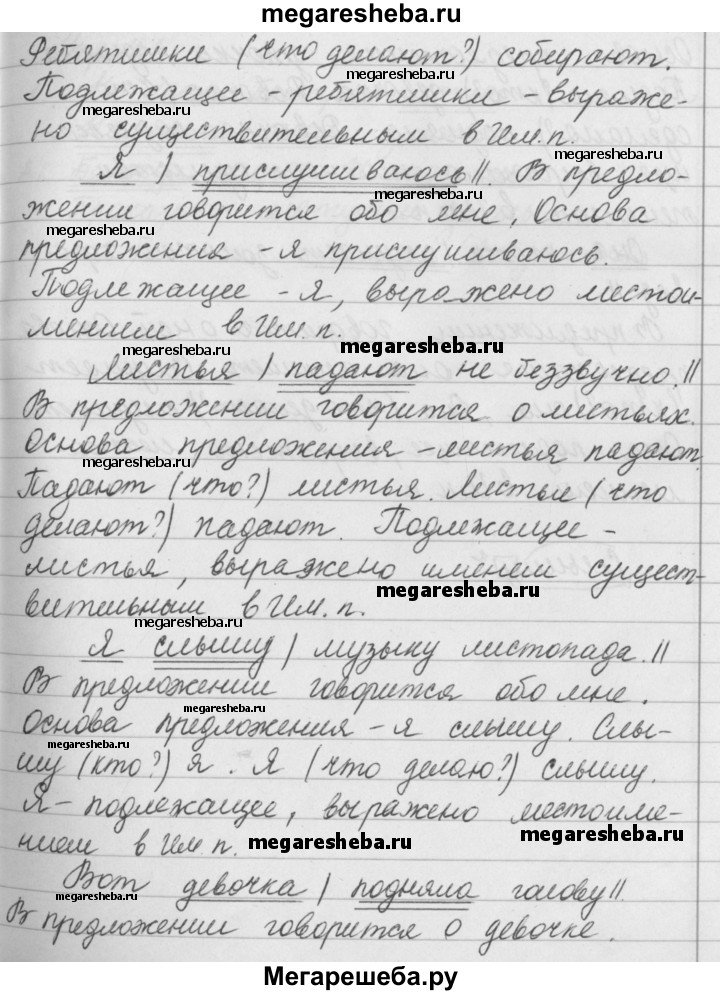 megaresheba.ru
Ребятишки (что делают?) собирают.
megaresheba.ru
megaresheba.ru
Подлежащее - ребятишки - выраже-
megaresheba.ru
но существительным в Им. п.
megaresheba.ru
Я | прислушиваюсь||. В предло-
megaresheba.ru
жении говорится обо мне. Основа
megaresheba.ru
предложения - я прислушиваюсь.
megaresheba.ru
Подлежащее - я, выражено местои-
мением в Им. п.
megaresheba.ru
Листья | падают не беззвучно.||
megaresheba.ru
В предложении говорится о листьях.
Основа предложения - листья падают.
megaresheba.ru
Падают (что?) листья. Листья (что
делают?) падают. Подлежащее -
листья, выражено именем сущест-
megaresheba.ru
вительным в Им. п.
megaresheba.ru
Я слышу | музыку листопада.||
В предложении говорится обо мне.
megaresheba.ru
Основа предложения - я слышу. Слы-
megaresheba.ru
шу (кто?) я. Я (что делаю?) слышу.
Я - подлежащее, выражено местоиме-
megaresheba.ru
нием в Им. п.
megaresheba.ru
Вот девочка | подняла голову||.
megaresheba.ru
megaresheba.ru
В предложении говорится о девочке.
Мегарешеба.ру